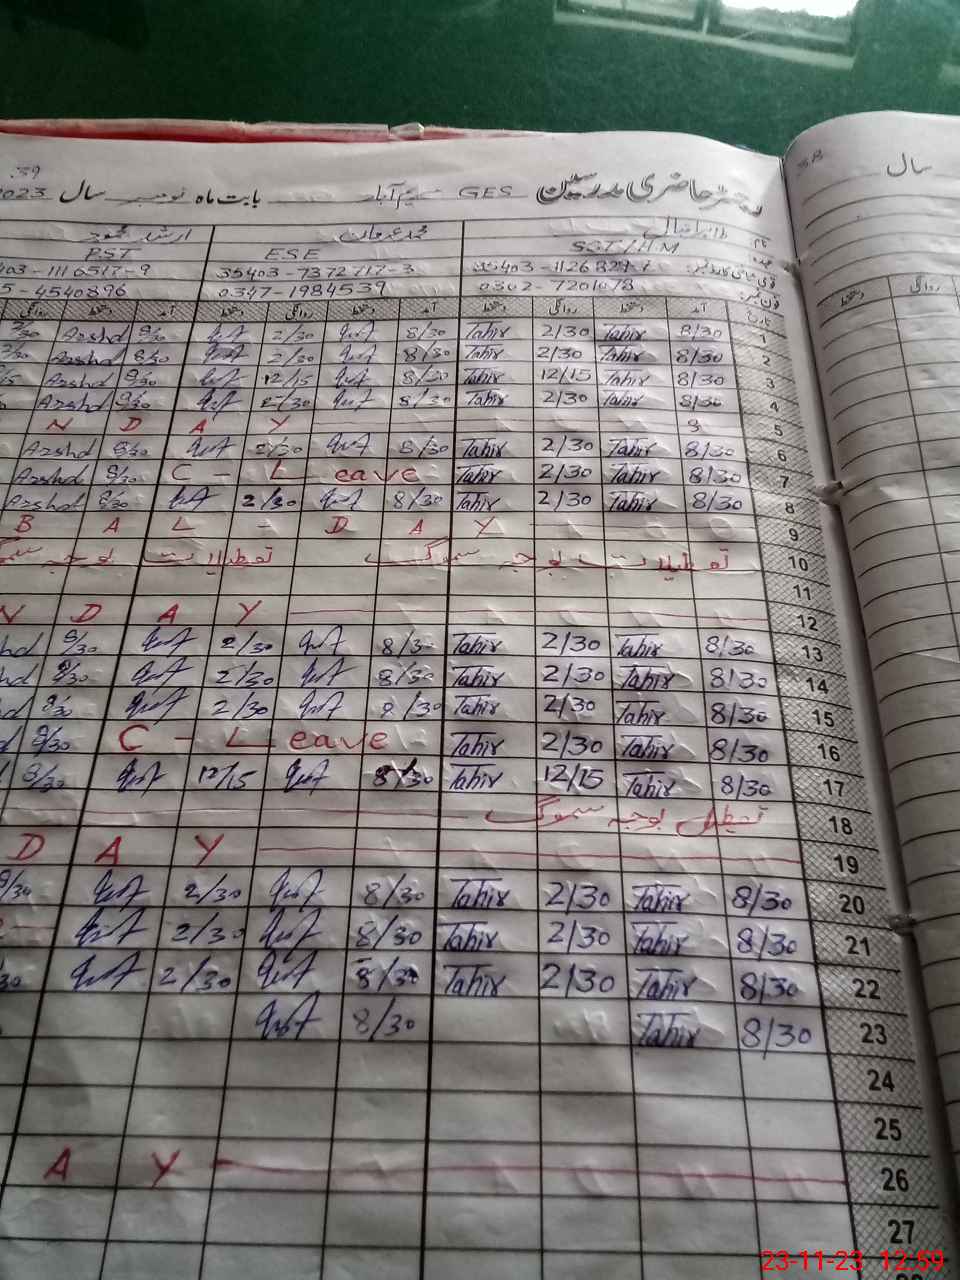 39
38
سال
رجسٹر حاضری مدرسین GES کریم آباد بابت ماہ نومبر سال 2023
نام طاہر اقبال محمد عرفان ارشد محمود
عہدہ SST/H.M ESE PST
35403-7372717-3
0302-7201078 0347-1984539 4540896
تاریخ آمد دستخط روانگی دستخط آمد دستخط روانگی دستخط آمد دستخط
روانگی
1 8/30 Tahir 2/30 Tahir 8/30 2/30 8/30 Arshd
2 8/30 Tahir 2/30 Tahir 8/30 2/30 8/30 Arshd
3 8/30 Tahir 12/15 Tahir 8/30 12/15 8/30 Arshd
4 8/30 Tahir 2/30 Tahir 8/30 2/30 8/30 Arshd
5 N D A Y
6 8/30 Tahir 2/30 Tahir 8/30 2/30 8/30 Arshd
7 8/30 Tahir 2/30 Tahir C - Leave 8/30 Arshd
8 8/30 Tahir 2/30 Tahir 8/30 2/30 8/30 Arshd
9 B A L - D A Y
10 تعطیلات بوجہ سموگ تعطیلات بوجہ سموگ
11
12 N D A Y
13 8/30 Tahir 2/30 Tahir 8/30 2/30 8/30 hd
14 8/30 Tahir 2/30 Tahir 8/30 2/30 8/30 hd
15 8/30 Tahir 2/30 Tahir 8/30 2/30 8/30 d
16 8/30 Tahir 2/30 Tahir C - Leave 8/30 d
17 8/30 Tahir 12/15 Tahir 8/30 12/15 8/30
18 تعطیل بوجہ سموگ
19 D A Y
20 8/30 Tahir 2/30 Tahir 8/30 2/30 8/30
21 8/30 Tahir 2/30 Tahir 8/30 2/30
22 8/30 Tahir 2/30 Tahir 8/30 2/30 30
23 8/30 Tahir 8/30
24
25
26 A Y
27
23-11-23 12:59